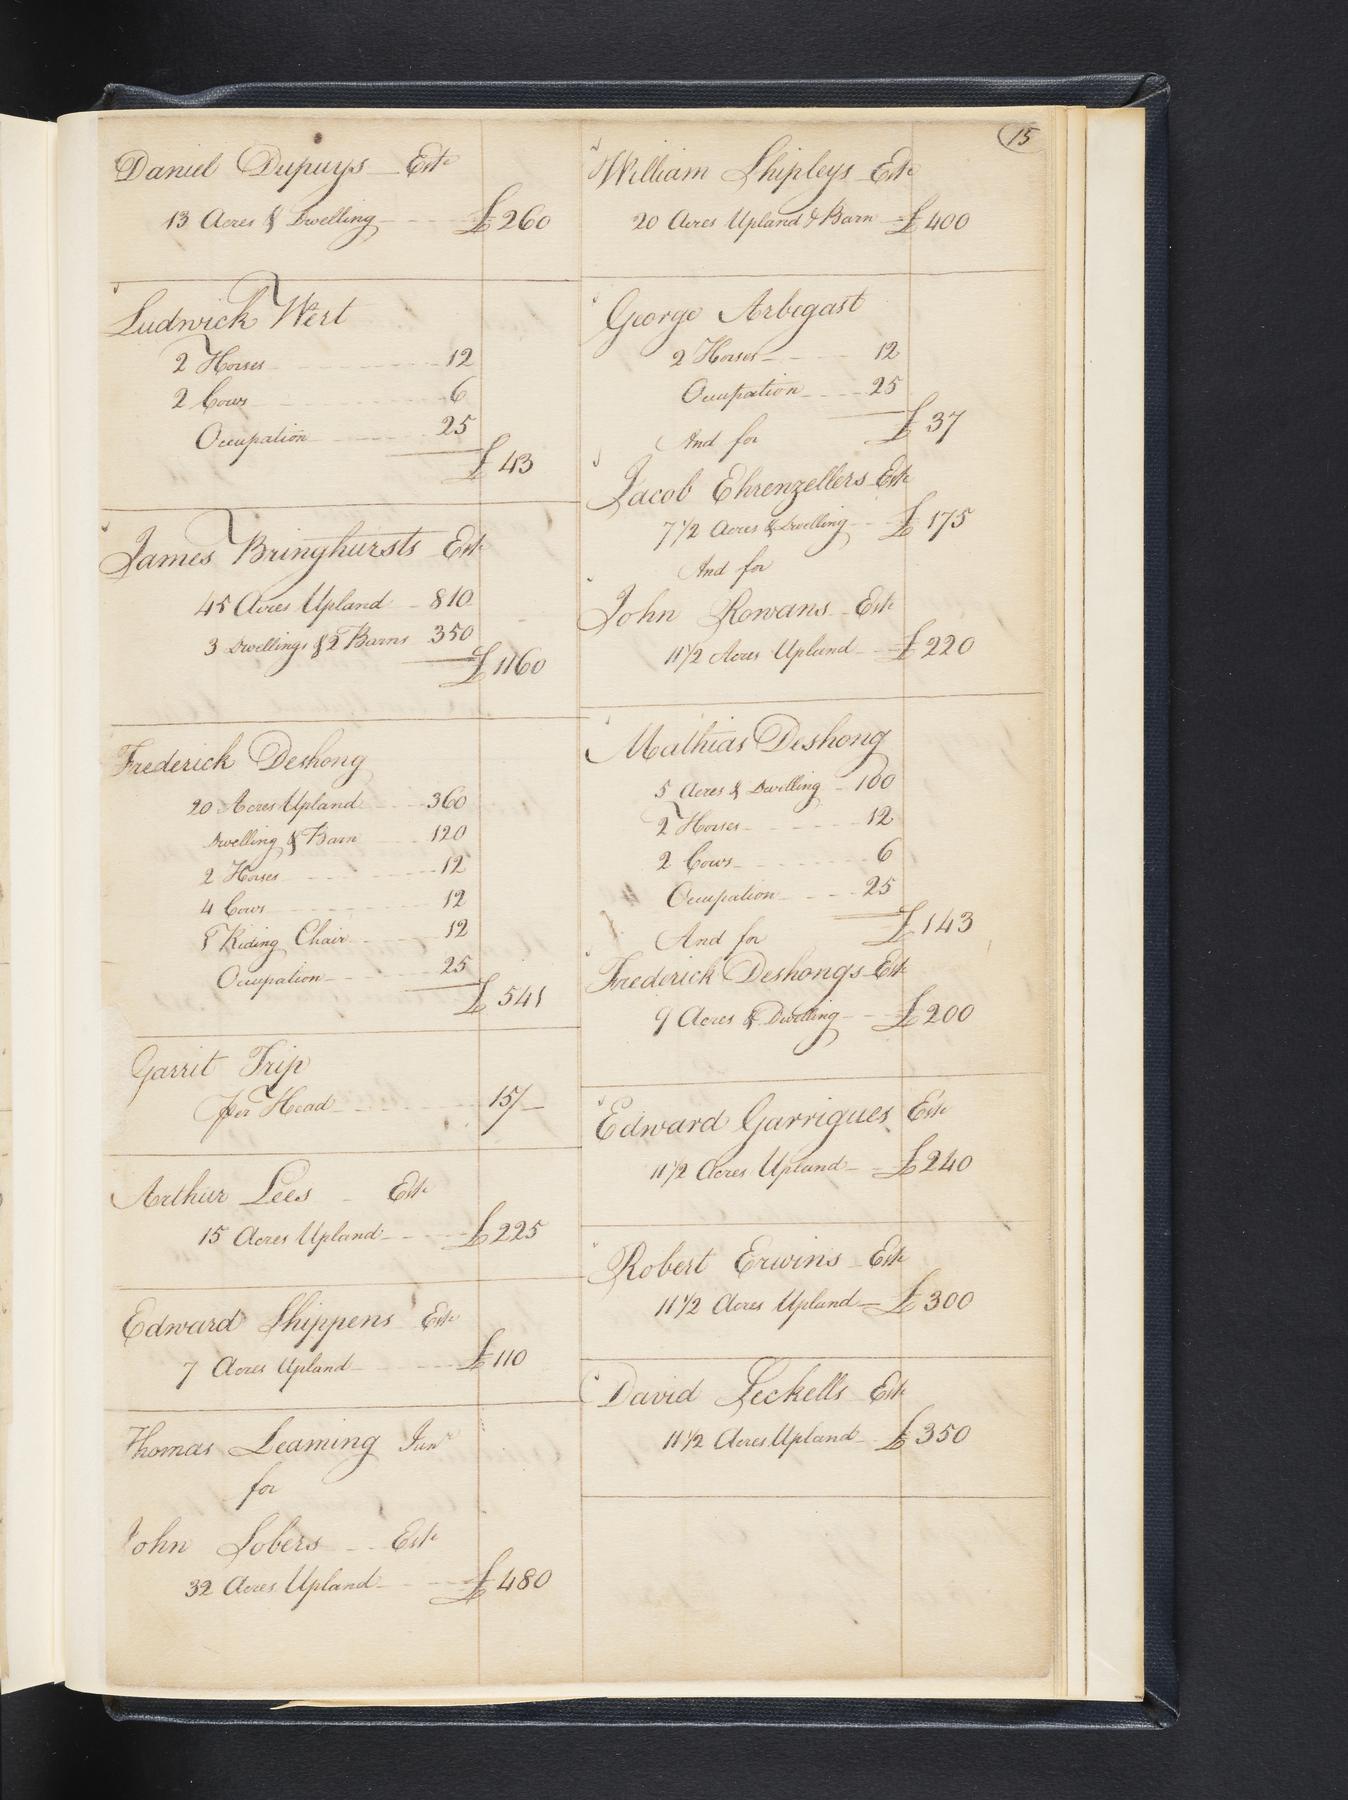 15
Daniel Dupuys Este
13 Acres & Dwelling £260
Ludwick Wert
2 Horses 12
2 Cows 6
Occupation 25
£43
James Bringhursts Este
45 Acres Upland 810
3 Dwellings & 2 Barns 350
£1160
Frederick Deshong
20 Acres Upland 360
Dwelling & Barn 120
2 Horses 12
4 Cows 12
1 Riding Chair 12
Occupation 25
£541
Garrit Trip
per Head 15/
Arthur Lees Este
15 Acres Upland £225
Edward Shippens Este
7 Acres Upland £110
Thomas Leaming Junr
for
John Lobers Este
32 Acres Upland £480
William Shipleys Este
20 Acres Upland & Barn £400
George Arbegast
2 Horses 12
Occupation 25
£37
And for
Jacob Ehrenzellers Este
7 1/2 Acres & Dwelling £175
And for
John Rowans Este
11 1/2 Acres Upland £220
Mathias Deshong
5 Acres & Dwelling 100
2 Horses 12
2 Cows 6
Occupation 25
£143
And for
Frederick Deshongs Este
9 Acres & Dwelling £200
Edward Garrigues Este
11 1/2 Acres Upland £240
Robert Erwins Este
11 1/2 Acres Upland £300
David Jeckells Este
11 1/2 Acres Upland £350